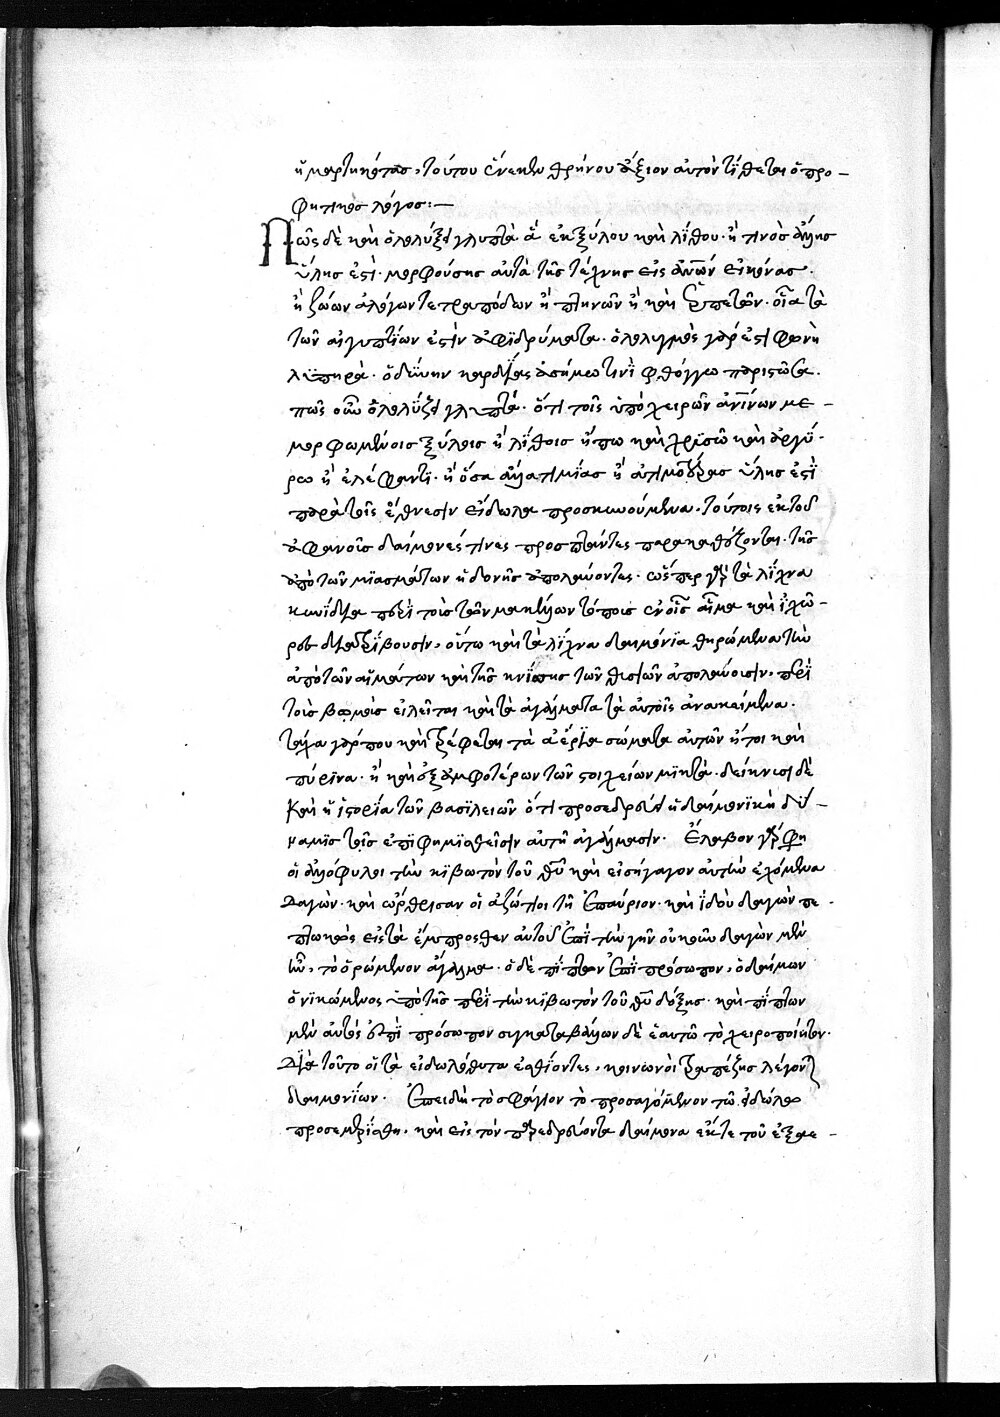 ἡμαρτηκότας, τούτου ἕνεκεν θρήνου ἄξιον αὐτὸν τίθεται ὁ προ-
φητικὸς λόγος:—
Πῶς δὲ καὶ ὀλολύξει γλυπτὰ ἃ ἐκ ξύλου καὶ λίθου· ἤ τινος ἄλλης
ὕλης ἐστὶ· μορφούσης αὐτὰ τῆς τέχνης εἰς ἀνων εἰκόνας·
ἢ ζώων ἀλόγων τετραπόδων ἢ πτηνῶν ἢ καὶ ἑρπετῶν· οἷα τὰ
τῶν αἰγυπτίων ἐστὶν ἀφϊδρύματα· ὀλολυγμὸς γάρ ἐστι φωνὴ
λυπηρὰ· ὀδύνην καρδίας ἀσήμω τινὶ φθόγγω παριστῶσα·
πῶς οὖν ὀλολύξει γλυπτά· ὅτι τοῖς ὑπὸ χειρῶν ἀνίνων με-
μορφωμένοις ξύλοις ἢ λίθοις ἤπω καὶ χρυσῶ καὶ ἀργύ-
ρω ἢ ἐλέφαντι· ἢ ὅσα ἄλλα τιμίας ἢ ἀτιμοτέρας ὕλης ἐστὶ
παρὰ τοῖς ἔθνεσιν εἴδωλα προσκυνούμενα, τούτοις ἐκ τοῦ
ἀφανοῦς δαίμονές τινες προσπτάντες παρακαθέζονται· τῆς
ἀπὸ τῶν μιασμάτων ἡδονῆς ἀπολαύοντες· ὥσπερ γὰρ τὰ λίχνα
κυνίδια περὶ τοὺς τῶν μακέλλων τόπους ἐν οἷς αἷμα καὶ ἰχῶ-
ρες διατρίβουσιν, οὕτω καὶ τὰ λίχνα δαιμόνια θηρώμενα τὴν
ἀπὸ τῶν αἱμάτων καὶ τῆς κνίσσης τῶν θυσιῶν ἀπόλαυσιν, περὶ
τοὺς βωμοὺς εἱλεῖται καὶ τὰ ἀγάλματα τὰ αὐτοῖς ἀνακείμενα·
τάχα γάρ που καὶ τρέφεται τὰ ἀέρια σώματα αὐτῶν ἤτοι καὶ
πύρινα· ἢ καὶ ἐξ ἀμφοτέρων τῶν στοιχείων μικτὰ· δείκνυσι δὲ
καὶ ἡ ἱστορία τῶν βασιλειῶν ὅτι προσεδρεύει ἡ δαιμονικὴ δύ-
ναμις τοῖς ἐπιφημισθεῖσιν αὐτῆ ἀγάλμασιν· Ἔλαβον γάρ φη
οἱ ἀλλόφυλοι τὴν κιβωτὸν τοῦ θυ καὶ εἰσήγαγον αὐτὴν ἐχόμενα
Δαγών· καὶ ὤρθρισαν οἱ ἀζώτιοι τῆ ἐπαύριον· καὶ ἰδοὺ δαγὼν πε-
πτωκὼς εἰς τὰ ἔμπροσθεν αὐτοῦ ἐπὶ τὴν γῆν οὐκοῦν δαγὼν μὲν
ἦν, τὸ ὁρώμενον ἄγαλμα· ὁ δὲ πίπτων ἐπὶ πρόσωπον, ὁ δαίμων
ὁ νικώμενος ὑπὸ τῆς περὶ τὴν κιβωτὸν τοῦ θυ δόξης· καὶ πίπτων
μὲν αὐτὸς ἐπὶ πρόσωπον συγκαταβάλλων δὲ ἑαυτῶ τὸ χειροποίητον·
Διὰ τοῦτο οἱ τὰ εἰδωλόθυτα ἐσθίοντες, κοινωνοὶ τραπέζης λέγονται
δαιμονίων· Ἐπειδὴ τὸ σφάγιον τὸ προσαγόμενον τῶ εἰδώλω
προσεμερίσθη, καὶ εἰς τὸν παρεδρεύοντα δαίμονα ἔκ τε τοῦ ἐξαε-